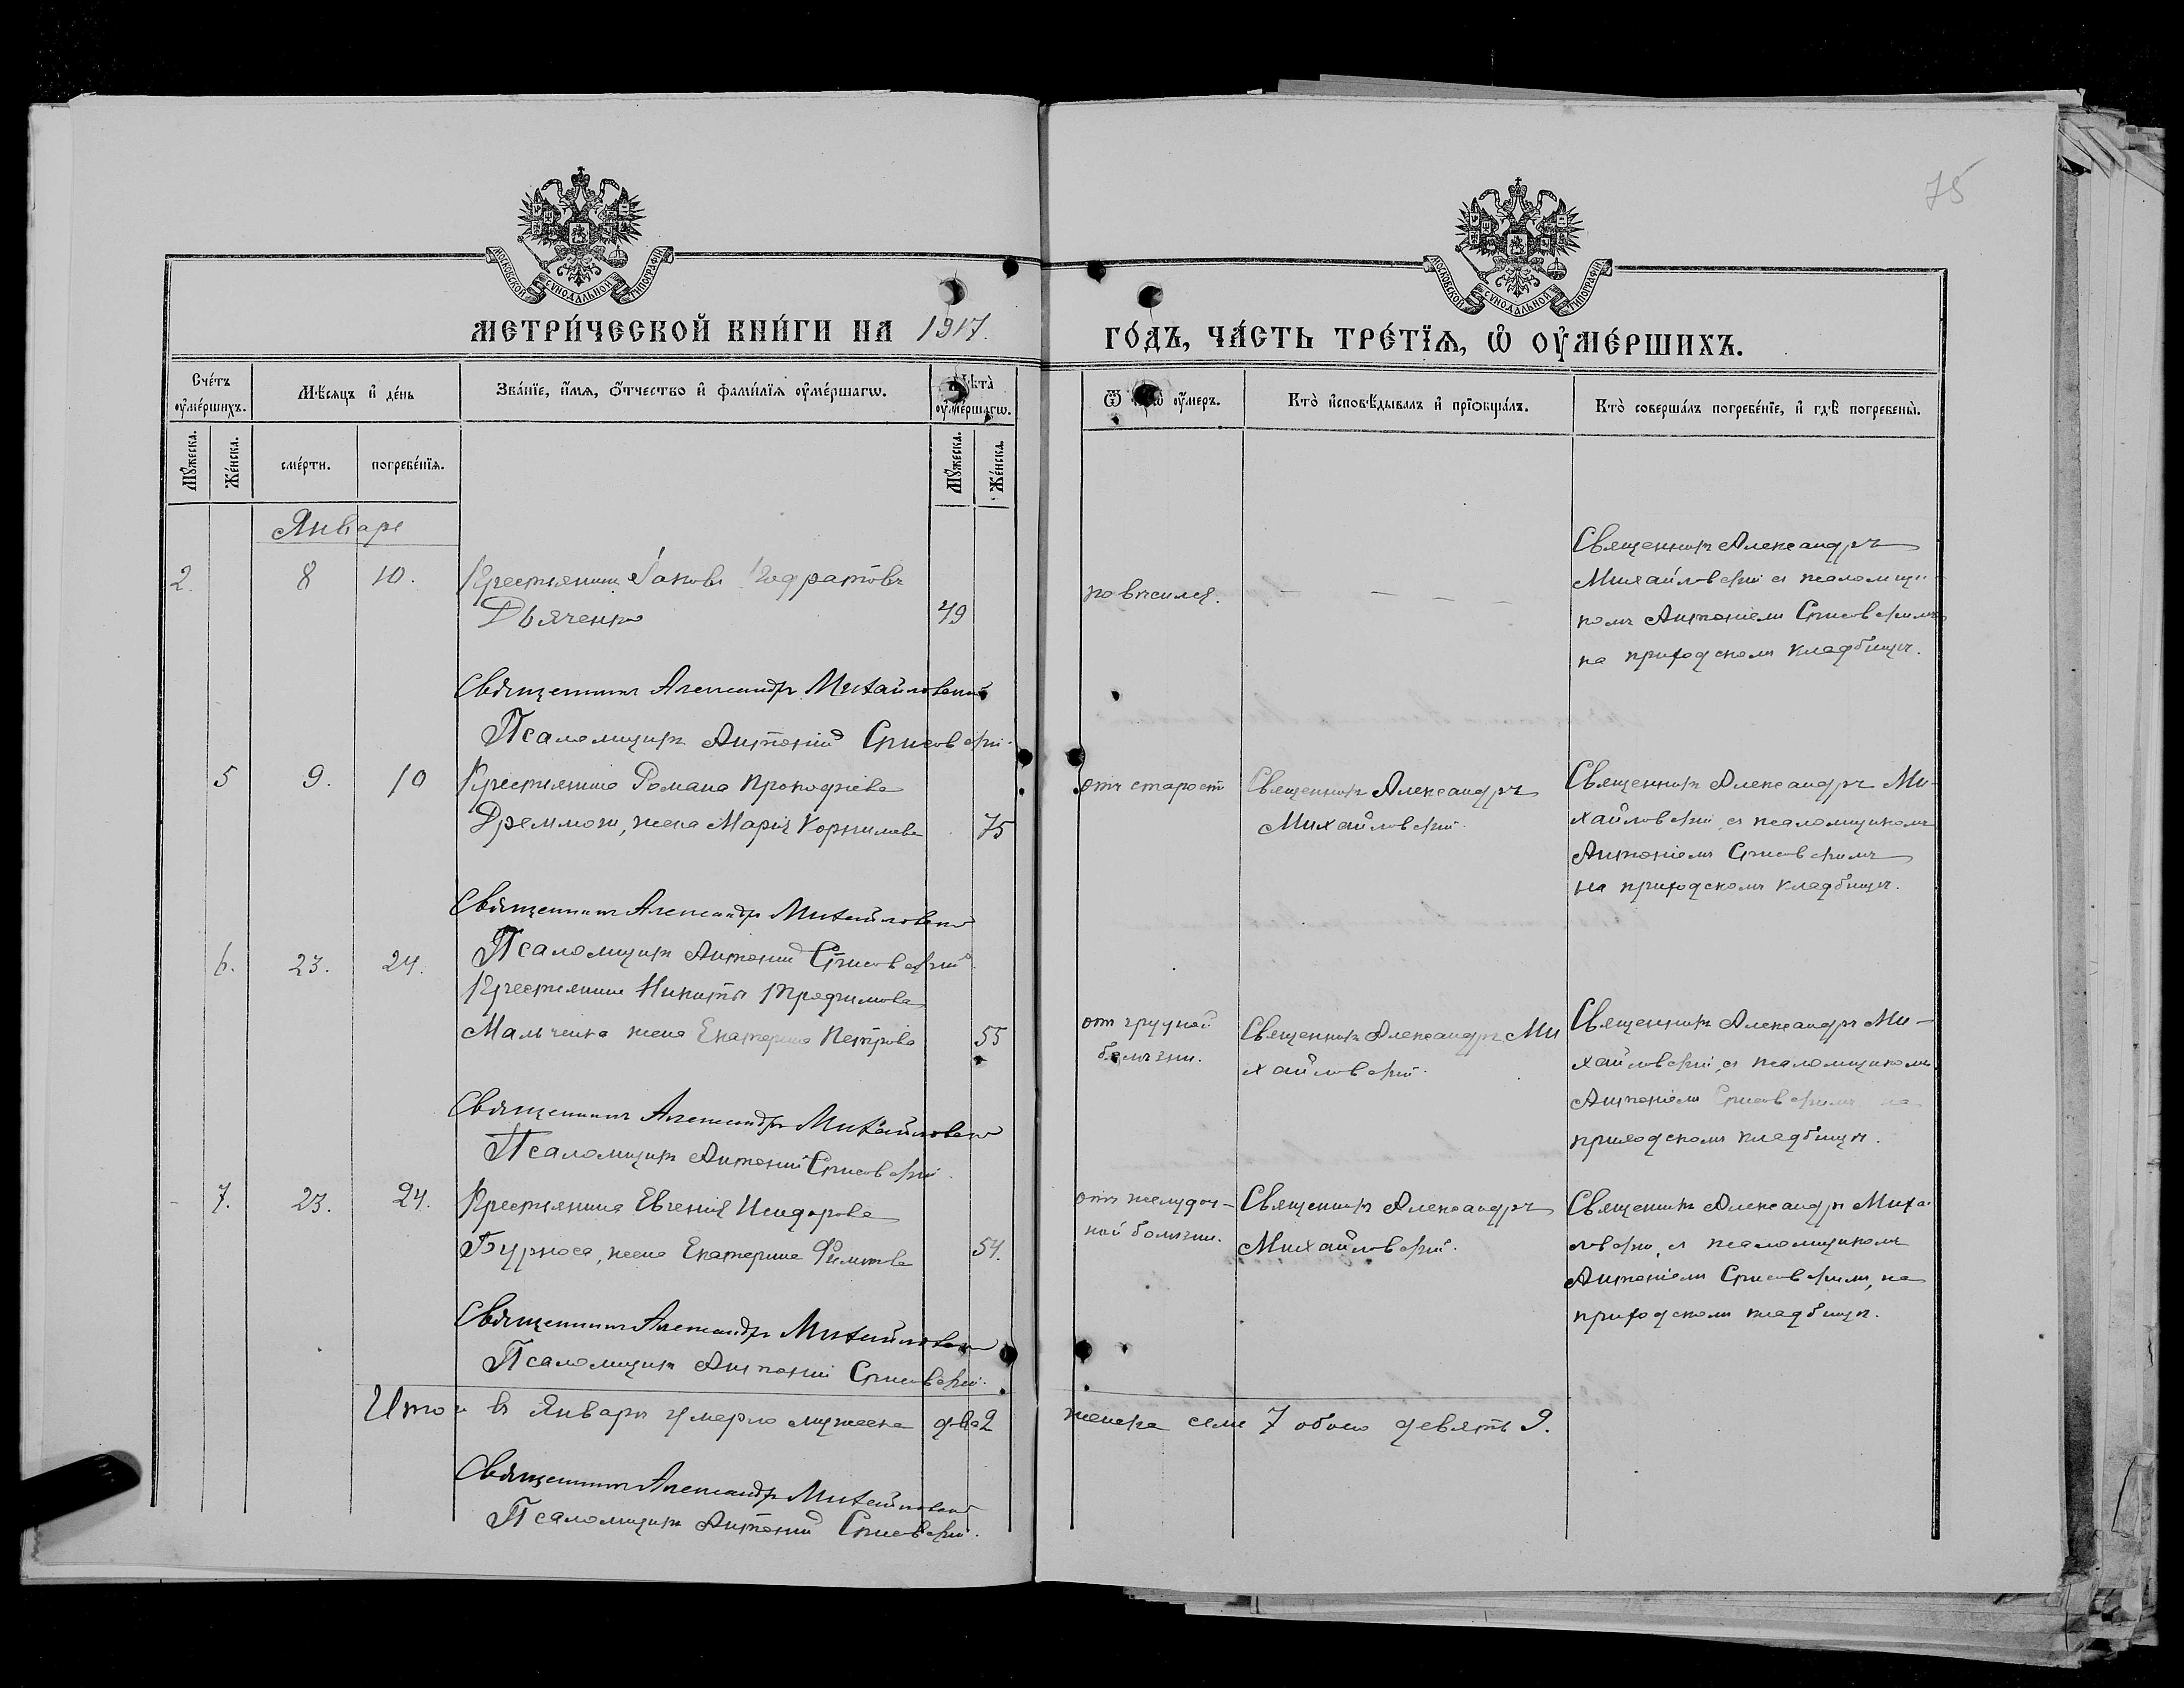 75
МОСКОВСКОЙ СУНОДАЛЬНОЙ ТИПОГРАФІИ
МОСКОВСКОЙ СУНОДАЛЬНОЙ ТИПОГРАФІИ
МЕТРИ́ЧЕСКОЙ КНИ́ГИ НА 1917. ГО́ДЪ, ЧА́СТЬ ТРЕ́ТЇѦ, Ѡ҆ ОУ҆МЕ́РШИХЪ.
Сче́тъ оу҆ме́ршихъ.
Мѣ́сяцъ и҆ де́нь
Зва́нїе, и҆́мѧ, ѻ҆́тчество и҆ фами́лїѧ оу҆ме́ршагѡ.
Лѣта̀ оу҆ме́ршагѡ.
Ѿ чегѡ̀ оу҆́меръ.
Кто̀ и҆сповѣ́дывалъ и҆ прїѻбща́лъ.
Кто̀ соверша́лъ погребе́нїе, и҆ гдѣ̀ погребены̀.
Мꙋ́жеска.
Же́нска.
сме́рти.
погребе́нїѧ.
Мꙋ́жеска.
Же́нска.
Январь
2. 8 10. Крестьянинъ Іаковъ Кодратовъ
Дьяченко 49
повѣсился.
— — — —
Священникъ Александръ
Михайловскій съ псаломщи-
комъ Антоніемъ
на приходскомъ кладбищѣ.
Священникъ Александръ Михайловскій
Псаломщикъ Антоній
5 9. 10 Крестьянина Романа Прокофіева
жена Марія Корнилова 75
отъ старост
Священникъ Александръ
Михайловскій.
Священникъ Александръ Ми-
хайловскій, съ псаломщикомъ
Антоніемъ
на приходскомъ кладбищѣ.
Священникъ Александръ Михайловскій
Псаломщикъ Антоній
6. 23. 24. Крестьянина Никиты Трофимова
Мальченка жена Екатерина Петрова 55
отъ грудной
болѣзни.
Священникъ Александръ Ми
хайловскій.
Священникъ Александръ Ми-
хайловскій, съ псаломщикомъ
Антоніемъ на
приходскомъ кладбищѣ.
Священникъ Александръ Михайловскій
Псаломщикъ Антоній
7. 23. 24. Крестьянина Евгенія Исидорова
Бурноса, жена Екатерина 54.
отъ желудоч-
ной болѣзни.
Священникъ Александръ
Михайловскій.
Священникъ Александръ Миха
ловскій, съ псаломщикомъ
Антоніемъ на
приходскомъ кладбищѣ.
Священникъ Александръ Михайловскій
Псаломщикъ Антоній
Итого въ Январѣ умерло мужеска два 2 женска семь 7 обоего девять 9.
Священникъ Александръ Михайловскій
Псаломщикъ Антоній